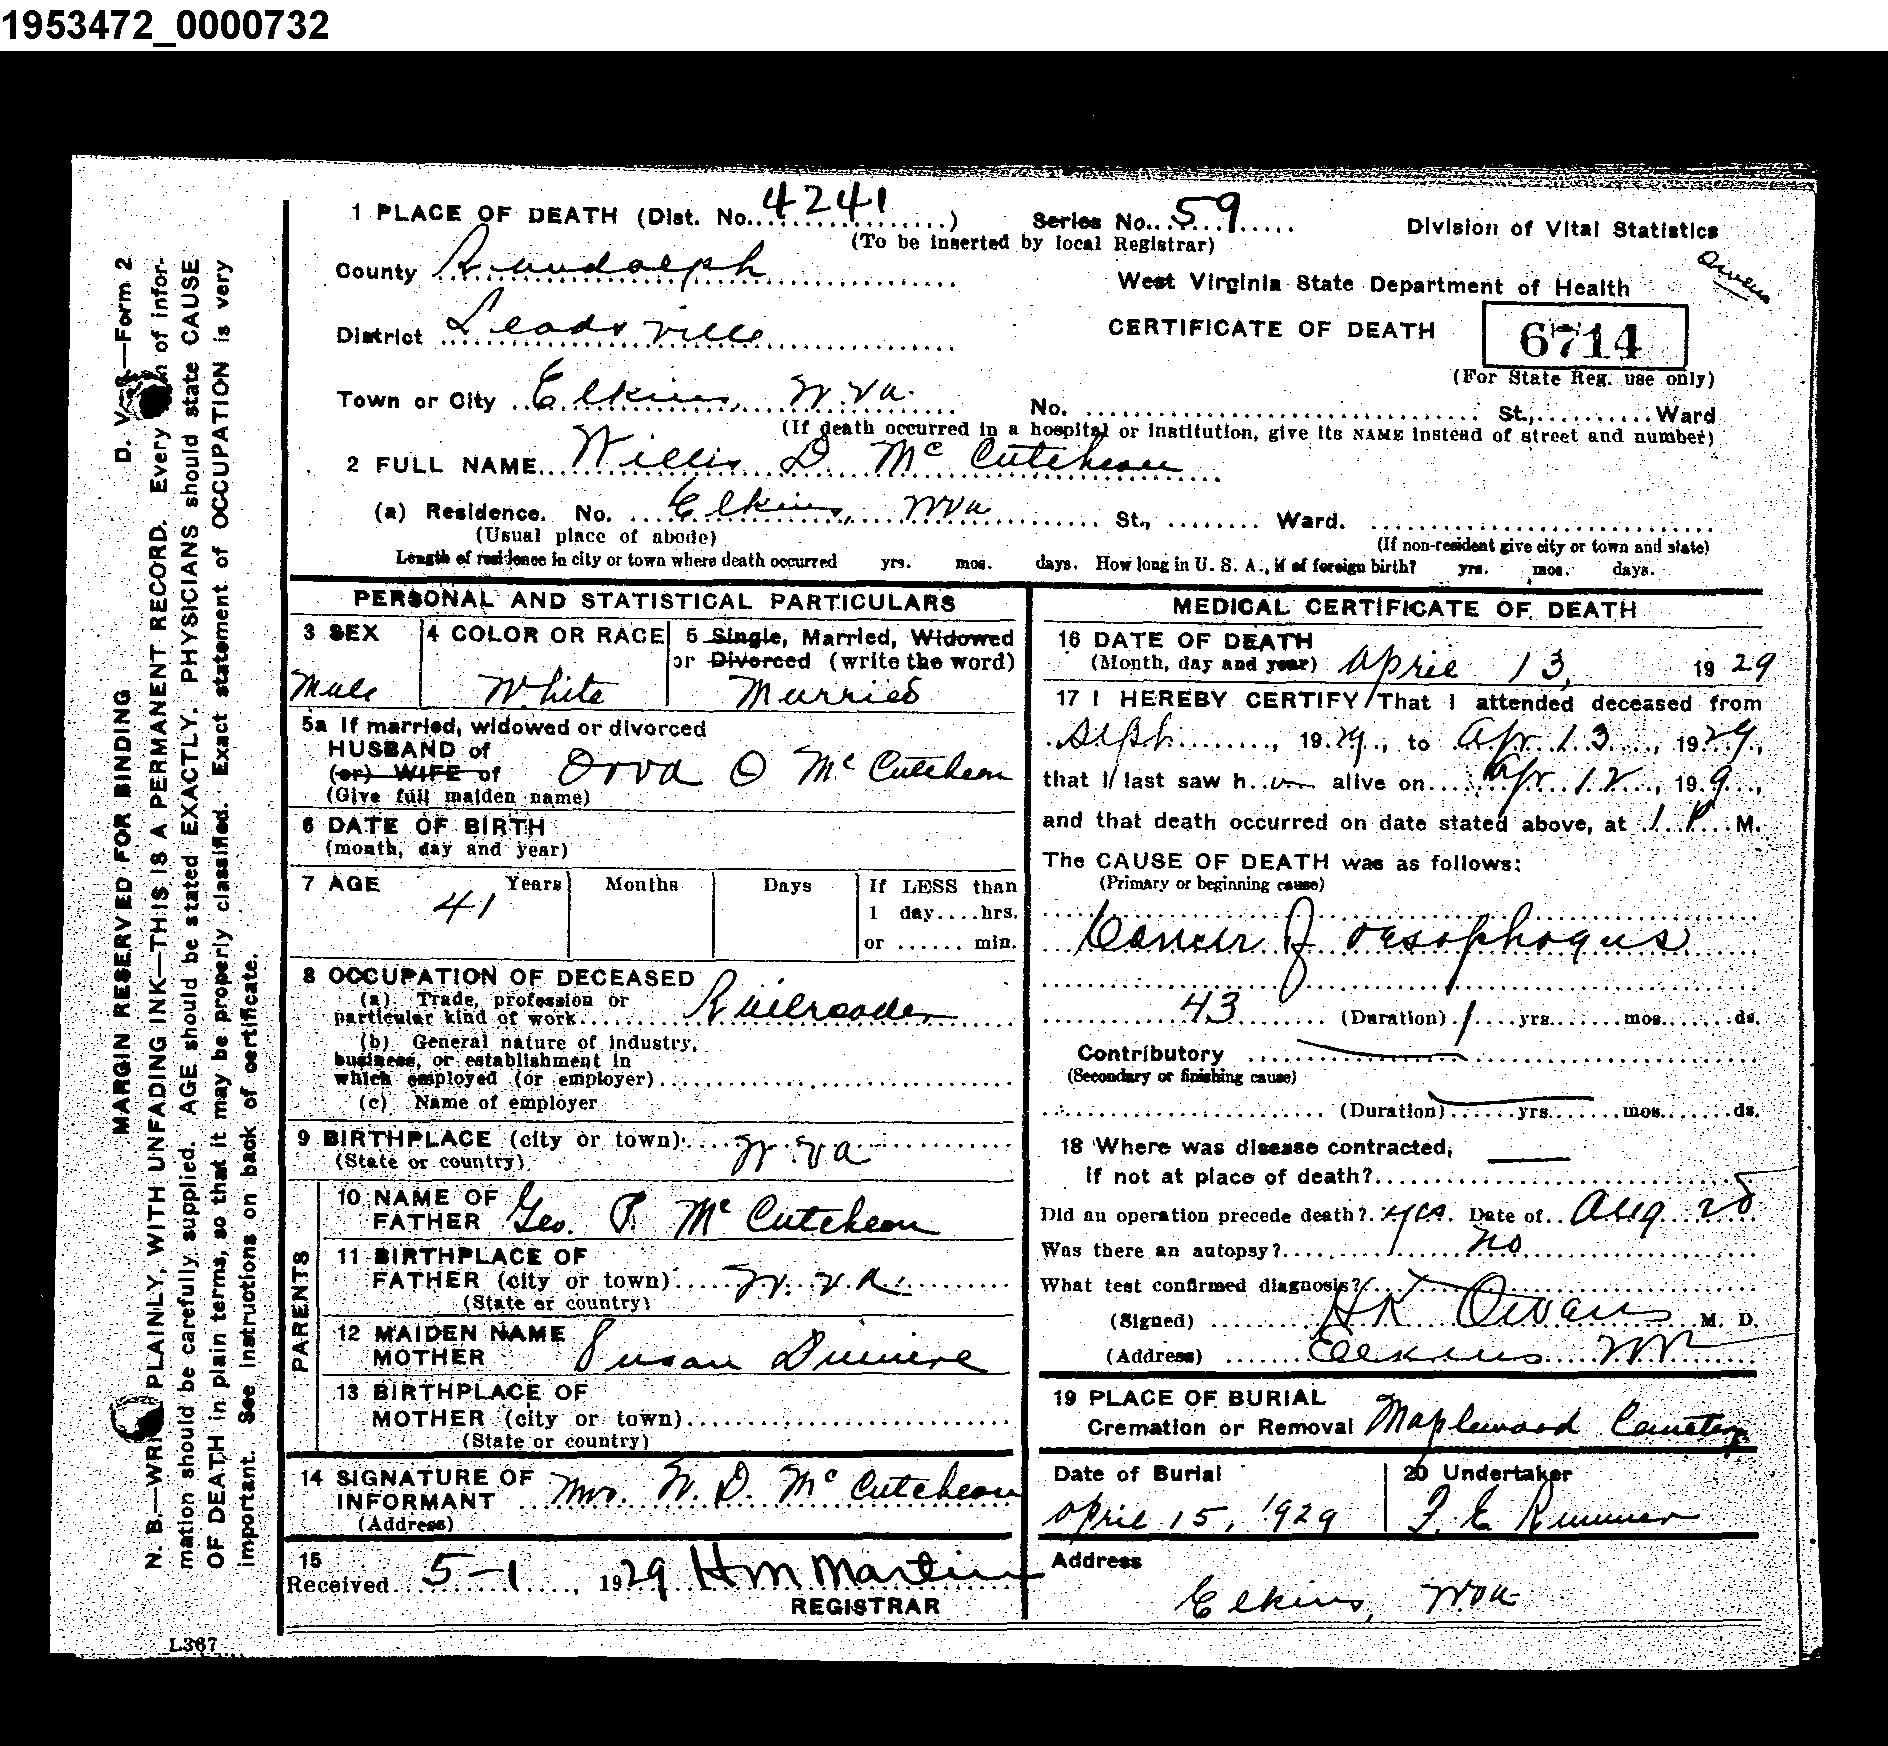 1953472_0000732
1 PLACE OF DEATH (Dist. No. 4241) Series No. 59 Division of Vital Statistics
(To be inserted by local Registrar)
County Randolph West Virginia State Department of Health
District Leadsville CERTIFICATE OF DEATH 6714
(For State Reg. use only)
Town or City Elkins, W.Va. No. St., Ward
(If death occurred in a hospital or institution, give its NAME instead of street and number)
2 FULL NAME Willis D. McCutcheon
(a) Residence. No. Elkins, WVa St., Ward.
(Usual place of abode) (If non-resident give city or town and state)
Length of residence in city or town where death occurred yrs. mos. days. How long in U. S. A., if of foreign birth? yrs. mos. days.
PERSONAL AND STATISTICAL PARTICULARS
3 SEX 4 COLOR OR RACE 5 Single, Married, Widowed
or Divorced (write the word)
Male White Married
5a If married, widowed or divorced
HUSBAND of
(or) WIFE of Orva O McCutcheon
(Give full maiden name)
6 DATE OF BIRTH
(month, day and year)
7 AGE Years Months Days If LESS than
41 1 day....hrs.
or ...... min.
8 OCCUPATION OF DECEASED
(a) Trade, profession or
particular kind of work Railroader
(b) General nature of industry,
business, or establishment in
which employed (or employer)
(c) Name of employer
9 BIRTHPLACE (city or town) W.Va
(State or country)
PARENTS
10 NAME OF
FATHER Geo. P. McCutcheon
11 BIRTHPLACE OF
FATHER (city or town) W.Va.
(State or country)
12 MAIDEN NAME
MOTHER Susan
13 BIRTHPLACE OF
MOTHER (city or town)
(State or country)
14 SIGNATURE OF
INFORMANT Mrs. W. D. McCutcheon
(Address)
15
Received 5-1, 1929 HM Martin
REGISTRAR
MEDICAL CERTIFICATE OF DEATH
16 DATE OF DEATH
(Month, day and year) April 13, 1929
17 I HEREBY CERTIFY That I attended deceased from
, 19 , to Apr 13, 1929,
that I last saw h alive on Apr 12, 19 9,
and that death occurred on date stated above, at 1 P M.
The CAUSE OF DEATH was as follows:
(Primary or beginning cause)
Cancer of oesophogus
43 (Duration) 1 yrs. mos. ds.
Contributory
(Secondary or finishing cause)
(Duration) yrs. mos. ds.
18 Where was disease contracted,
if not at place of death?
Did an operation precede death? yes. Date of Aug 28
Was there an autopsy? no
What test confirmed diagnosis?
(Signed) HK Owens M. D.
(Address) Elkins WV
19 PLACE OF BURIAL
Cremation or Removal Maplewood Cemetery
Date of Burial 20 Undertaker
April 15, 1929 F. E. Rimmer
Address
Elkins, WVa
D. V. S.—Form 2
MARGIN RESERVED FOR BINDING
N. B.—WRITE PLAINLY, WITH UNFADING INK—THIS IS A PERMANENT RECORD. Every of infor-
mation should be carefully supplied. AGE should be stated EXACTLY. PHYSICIANS should state CAUSE
OF DEATH in plain terms, so that it may be properly classified. Exact statement of OCCUPATION is very
important. See instructions on back of certificate.
L367